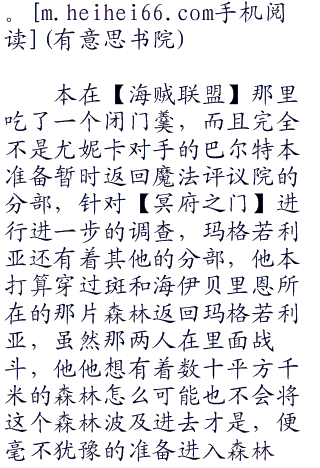 。[m.heihei66.com手机阅
读](有意思书院)
本在【海贼联盟】那里
吃了一个闭门羹，而且完全
不是尤妮卡对手的巴尔特本
准备暂时返回魔法评议院的
分部，针对【冥府之门】进
行进一步的调查，玛格若利
亚还有着其他的分部，他本
打算穿过斑和海伊贝里恩所
在的那片森林返回玛格若利
亚，虽然那两人在里面战
斗，他他想有着数十平方千
米的森林怎么可能也不会将
这个森林波及进去才是，便
毫不犹豫的准备进入森林